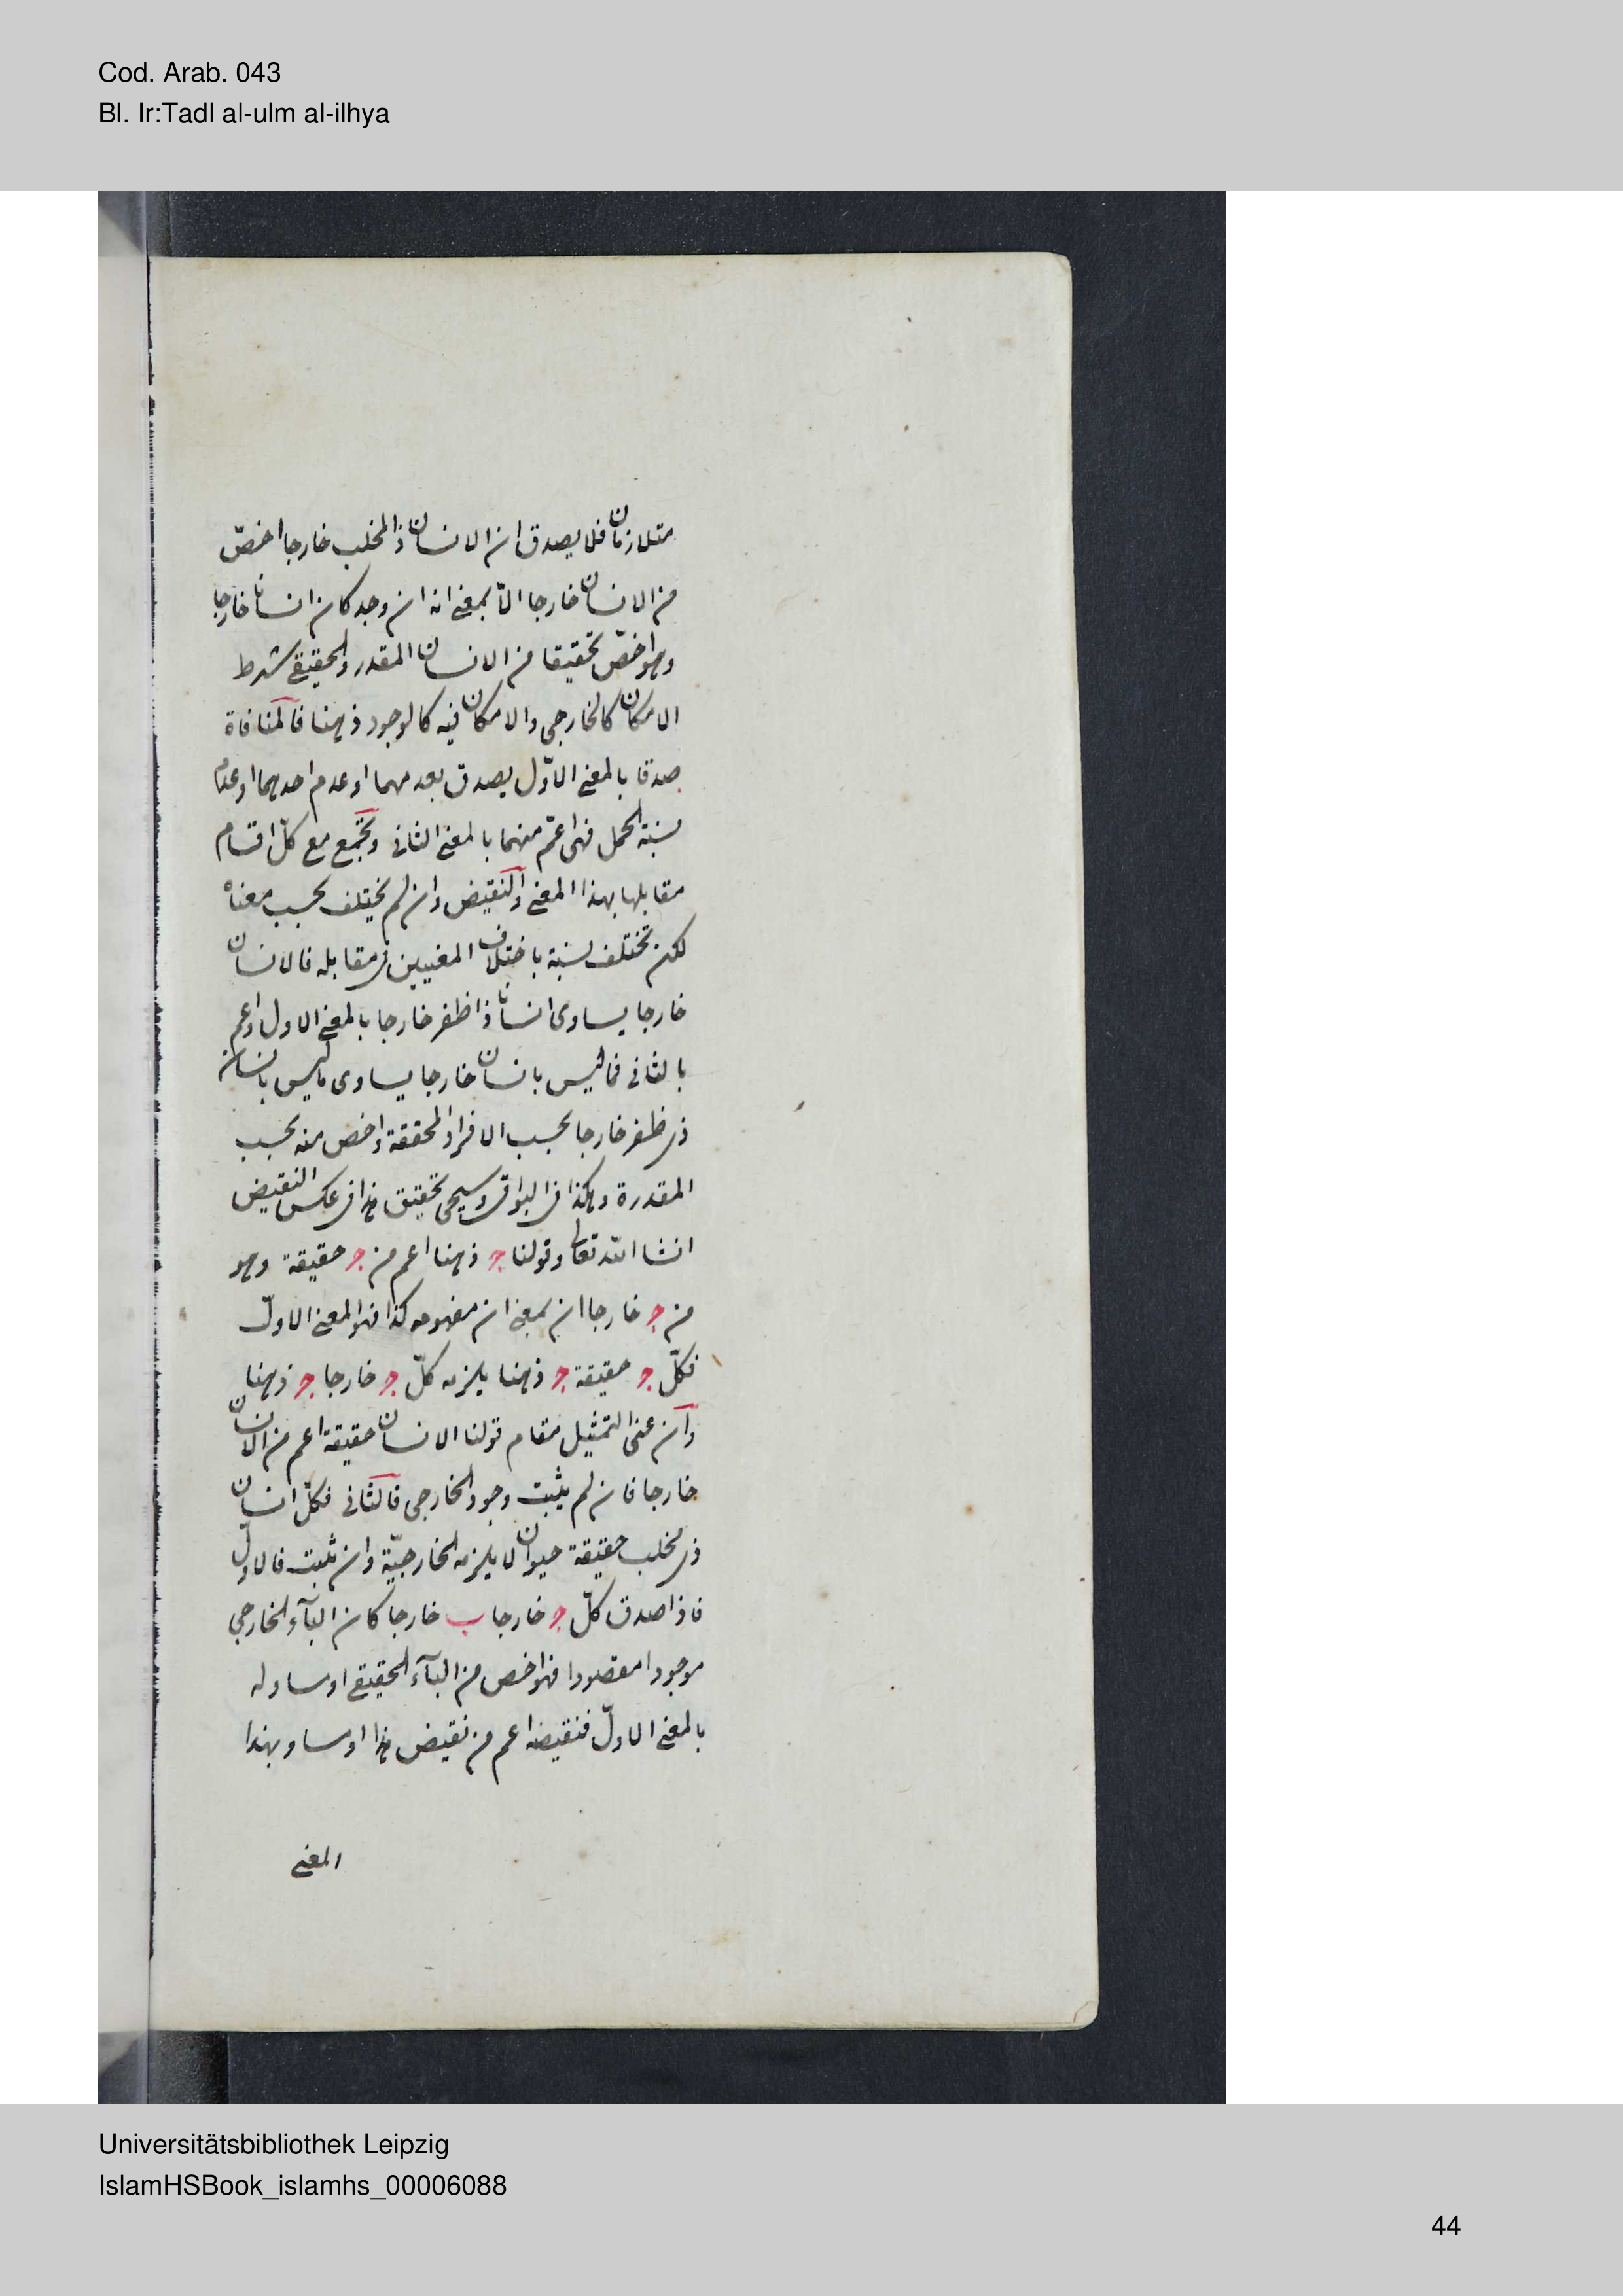 Cod. Arab. 043
Bl. Ir:Tadl al-ulm al-ilhya
متلازمان فلا يصدق ان الانسان ذا المخلب خارجا اخصّ
من الانسان خارجا الّا بمعنى انه ان وجد كان انسانا خارجا
وهو اخصّ تحقيقا من الانسان المقدر والحقيقى شرط
الامكان كالخارجى والامكان فيه كالوجود ذهنا فالمنافاة
صدقا بالمعنى الاوّل يصدق بعدمهما او عدم احدهما او عدم
نسبة الحمل فهى اعمّ منهما بالمعنى الثانى وتجتمع مع كلّ اقسام
مقابلها بهذا المعنى والنقيض وان لم يختلف بحسب معناه
لكن تختلف نسبة باختلاف المعنيين فى مقابله فالانسان
خارجا يساوى انسانا ذا ظفر خارجا بالمعنى الاول واعم
بالثانى فما ليس بانسان خارجا يساوى ما ليس بانسان
ذى ظفر خارجا بحسب الافراد المحققة واخص منه بحسب
المقدرة وهكذا فى البواقى وسيجى تحقيق هذا فى عكس النقيض
انشا الله تعالى وقولنا ج ذهنا اعم من ج حقيقة وهو
من ج خارجا ان بمعنى ان مفهومه كذا فهو المعنى الاولّ
فكلّ ج حقيقة ج ذهنا يلزمه كلّ ج خارجا ج ذهنا
وان عنى التمثيل مقام قولنا الانسان حقيقة اعم من الانسان
خارجا فان لم يثبت وجود الخارجى فالثانى فكلّ انسان
ذى مخلب حقيقة حيوان لا يلزمه الخارجيّة وان ثبت فالاولّ
فاذا صدق كلّ ج خارجا ب خارجا كان البآء الخارجى
موجودا مقصودا فهو اخص من البآء الحقيقى او مساو له
بالمعنى الاولّ فنقيضه اعم من نقيض هذا او مساو بهذا
المعنى
Universitätsbibliothek Leipzig
IslamHSBook_islamhs_00006088
44